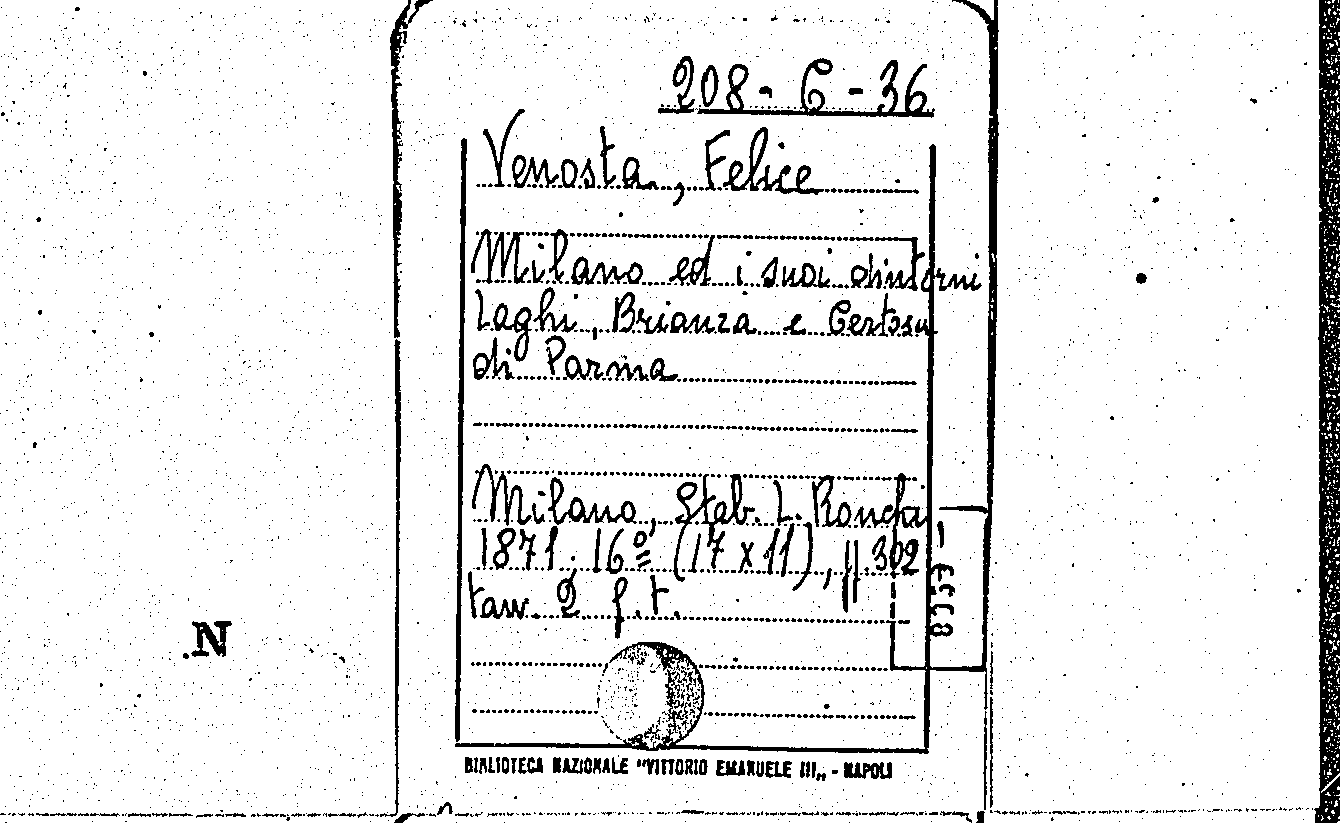 208-C-36
Venosta, Felice
Milano ed i suoi dintorni
Laghi, Brianza e Certosa
di Parma
Milano, Stab. L. Ronchi
1871. 16º (17 x 11), pp. 302
tavv. 2 f.t.
N
BIBLIOTECA NAZIONALE "VITTORIO EMANUELE III„ - NAPOLI